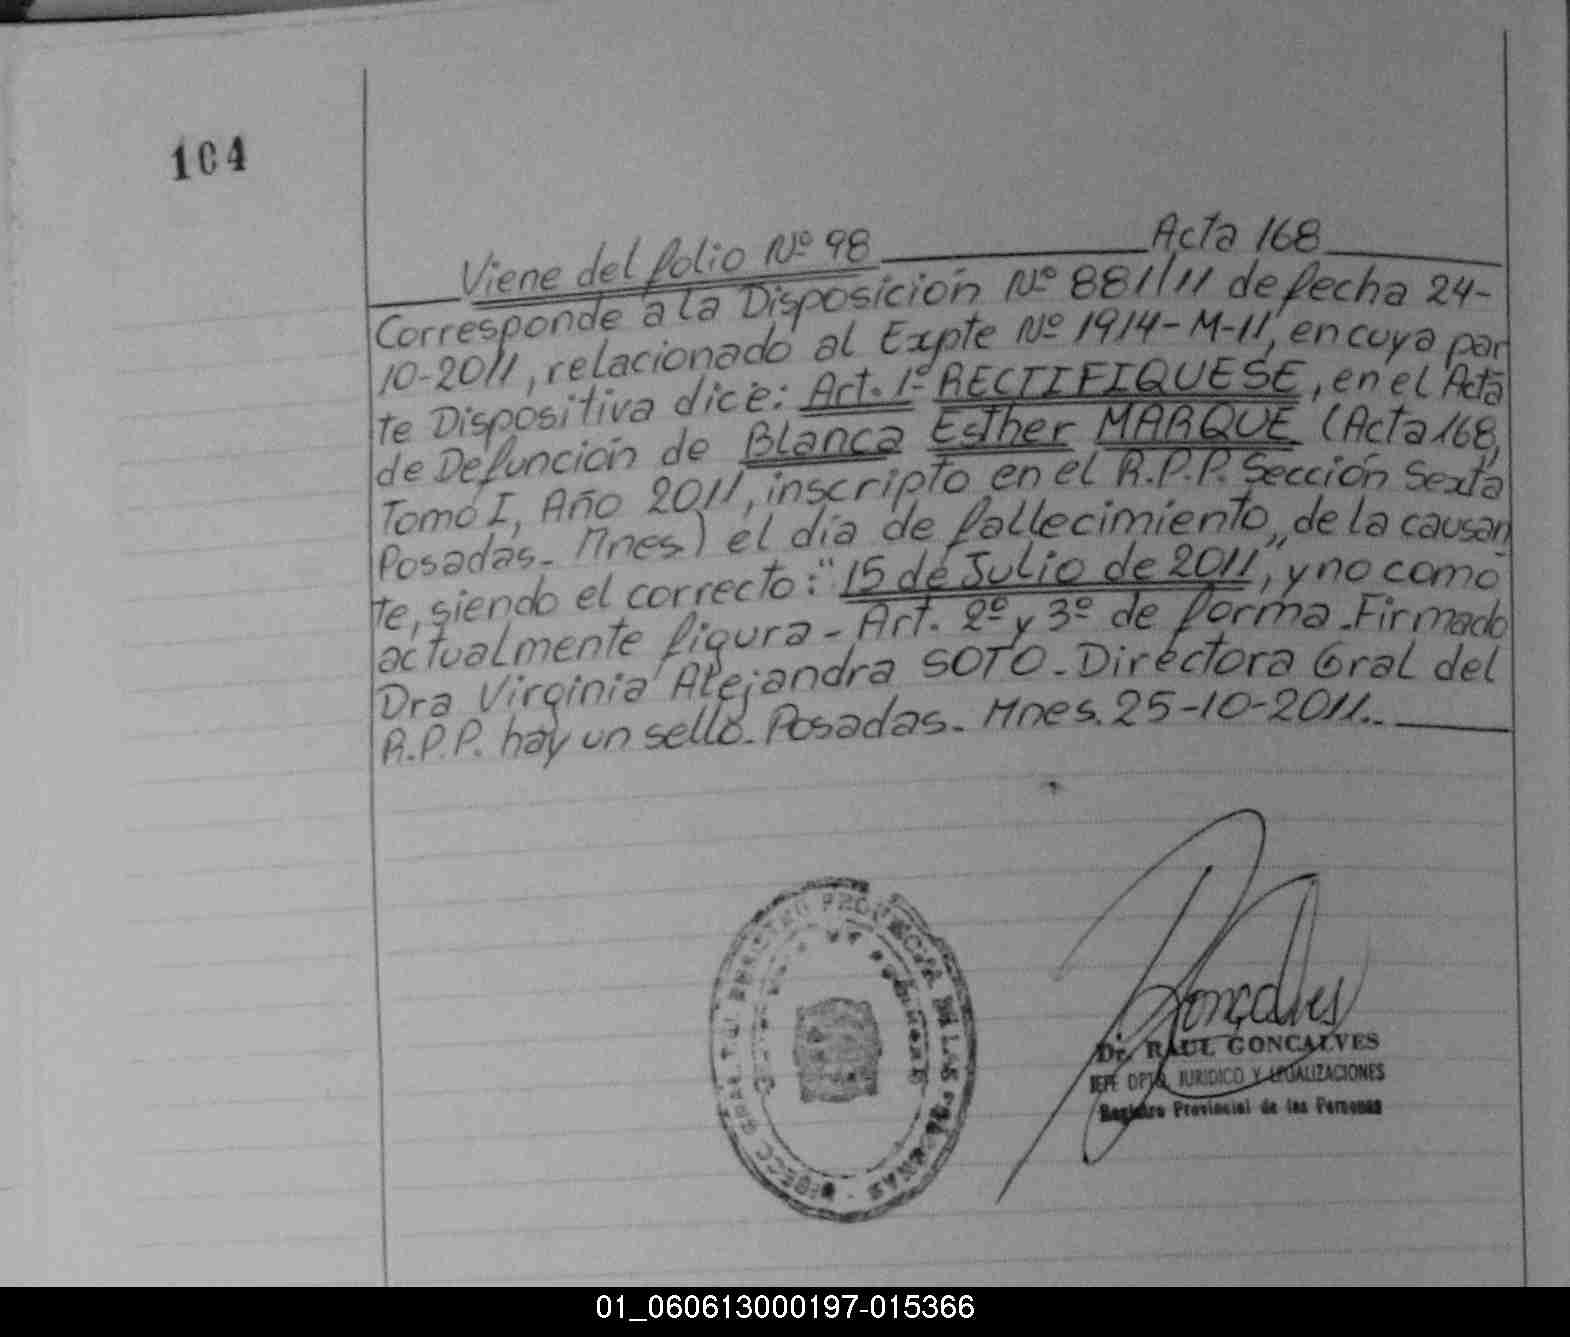 104
Viene del folio Nº 98 Acta 168
Corresponde a la Disposición Nº 881/11 de fecha 24-
10-2011, relacionado al Expte Nº 1914-M-11, en cuya par
te Dispositiva dice: Art. 1º RECTIFIQUESE, en el Acta
de Defunción de Blanca Esther MARQUE (Acta 168,
Tomo I, Año 2011, inscripto en el R.P.P. Sección Sexta
Posadas- Mnes) el día de fallecimiento, de la causan
te, siendo el correcto: "15 de Julio de 2011", y no como
actualmente figura- Art. 2º y 3º de forma-Firmado
Dra Virginia Alejandra SOTO-Directora Gral del
R.P.P. hay un sello- Posadas- Mnes. 25-10-2011.-
PROVINCIAL DE LAS PERSONAS
Goncalves
Dr. RAUL GONCALVES
JEFE DPTO. JURIDICO Y LEGALIZACIONES
Registro Provincial de las Personas
01_060613000197-015366